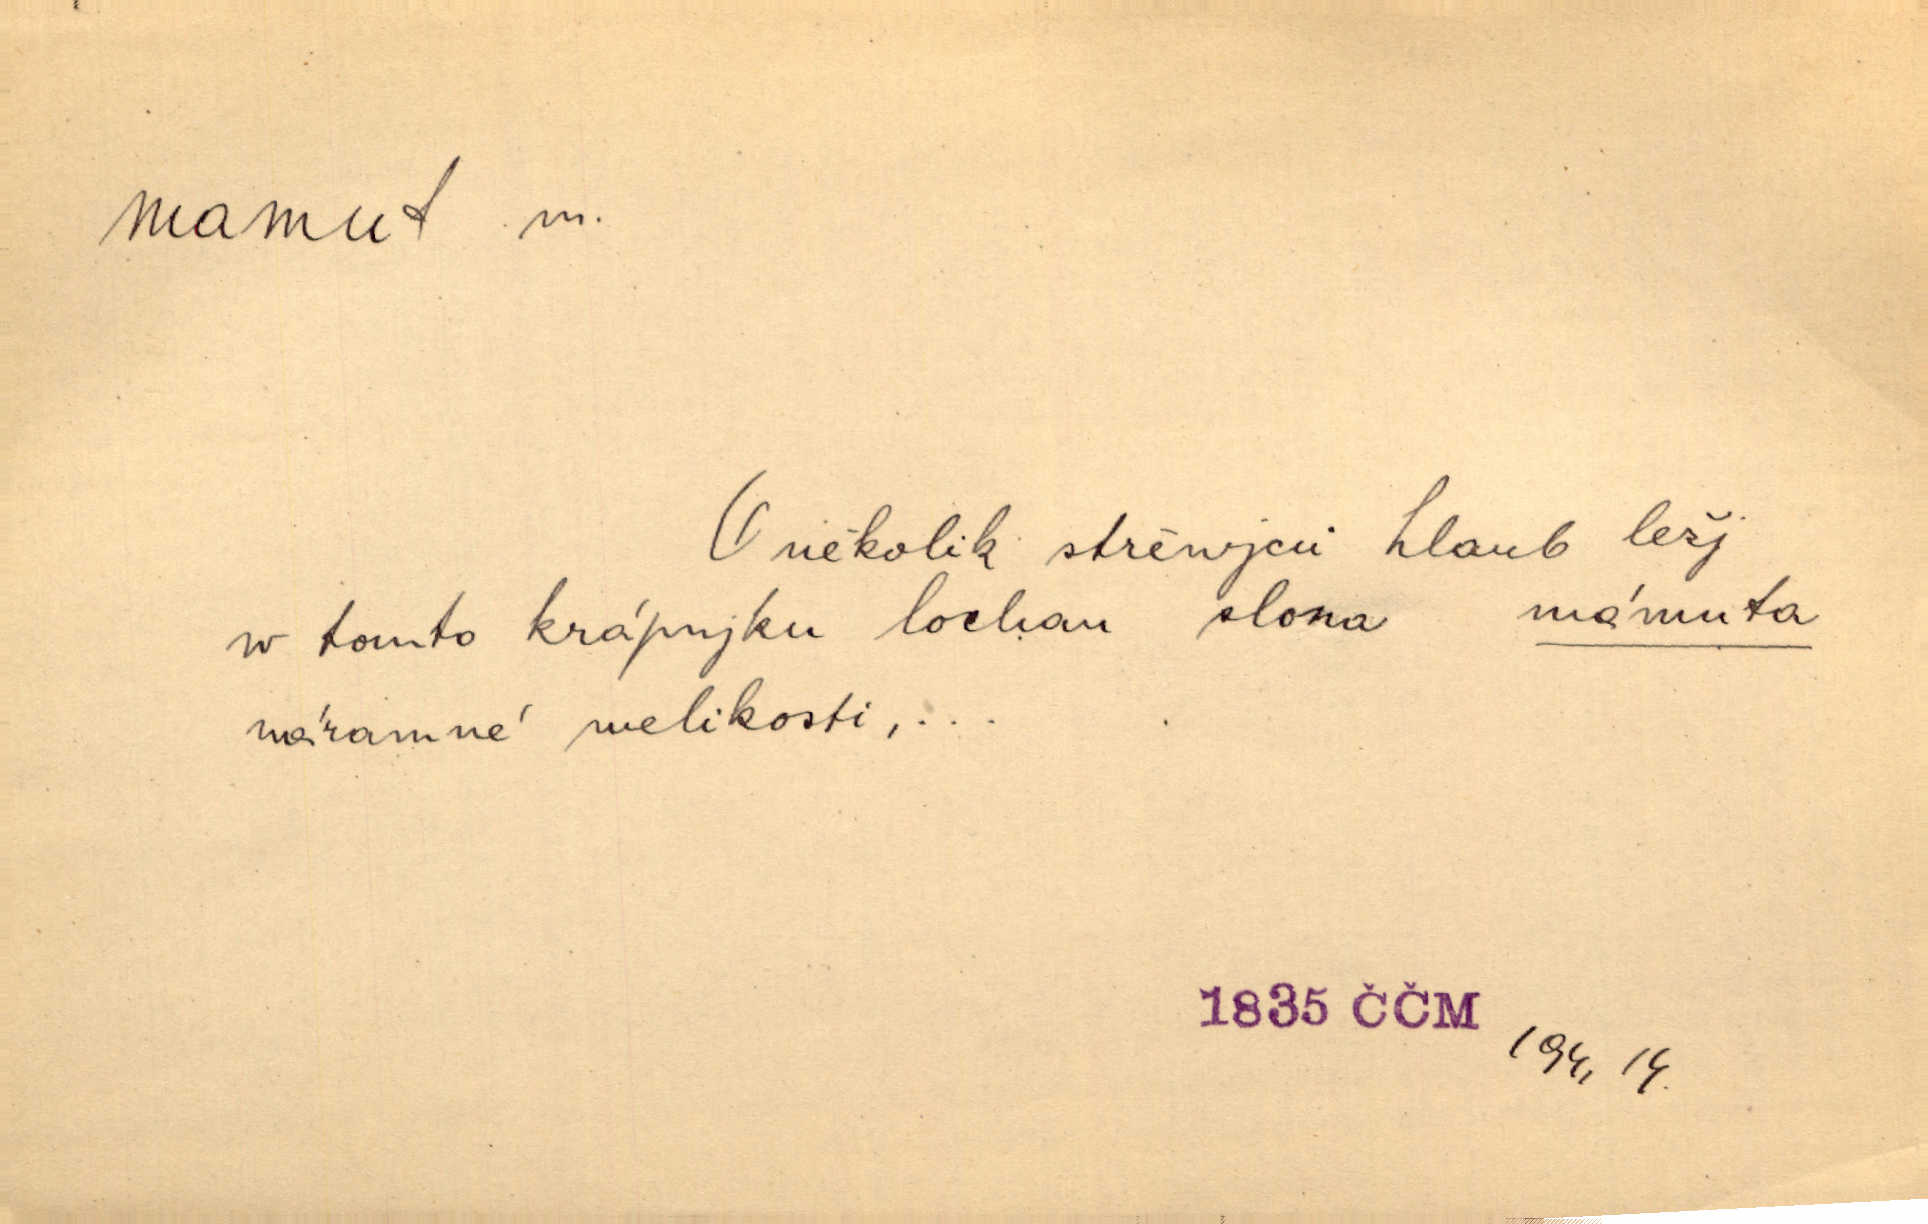 mamut m.
O několik střewjců hlaub ležj
w tomto krápnjku lochau slona mámuta
náramné welikosti, ...
1835 ČČM
194, 14.